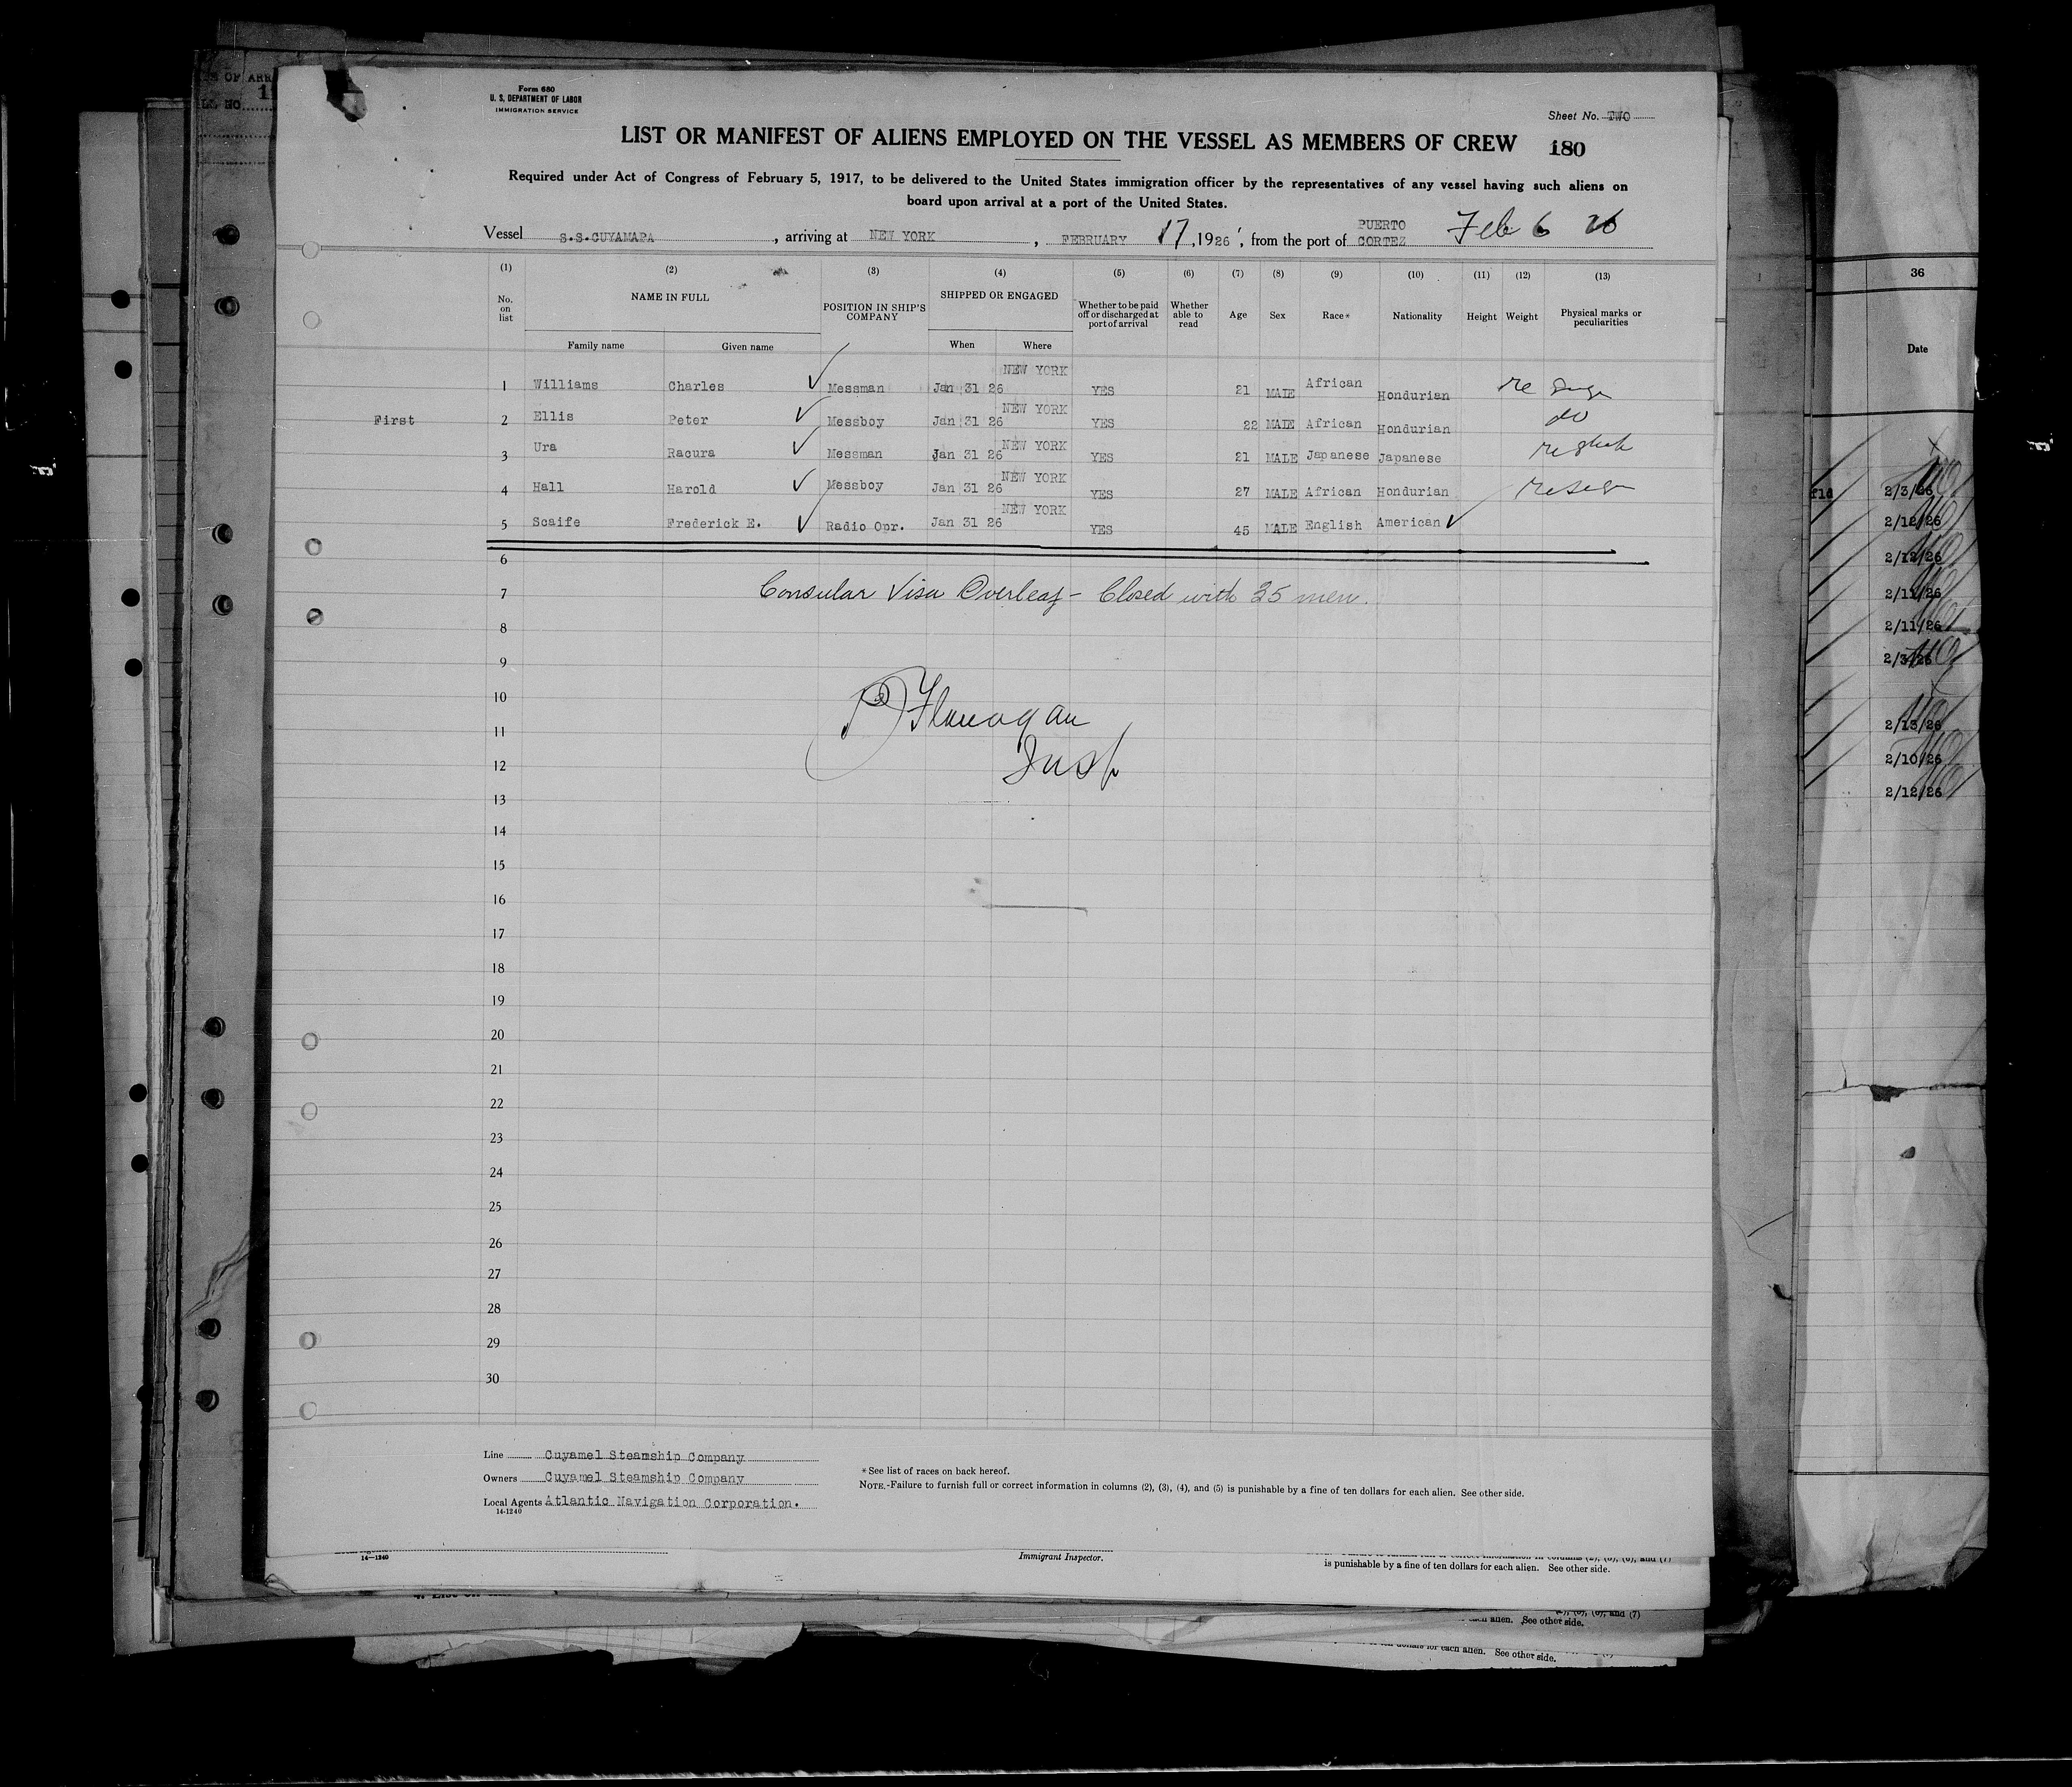 Form 680
U. S. DEPARTMENT OF LABOR
IMMIGRATION SERVICE
Sheet No. TWO
LIST OR MANIFEST OF ALIENS EMPLOYED ON THE VESSEL AS MEMBERS OF CREW
180
Required under Act of Congress of February 5, 1917, to be delivered to the United States immigration officer by the representatives of any vessel having such aliens on
board upon arrival at a port of the United States.
Vessel S.S.CUYAMAPA, arriving at NEW YORK, FEBRUARY 17, 1926, from the port of PUERTO CORTEZ Feb 6 26
(1) (2) (3) (4) (5) (6) (7) (8) (9) (10) (11) (12) (13)
No. on list NAME IN FULL POSITION IN SHIP'S COMPANY SHIPPED OR ENGAGED Whether to be paid off or discharged at port of arrival Whether able to read Age Sex Race* Nationality Height Weight Physical marks or peculiarities
Family name Given name When Where
1 Williams Charles ✓ Messman Jan 31 26 NEW YORK YES 21 MALE African Hondurian
First 2 Ellis Peter ✓ Messboy Jan 31 26 NEW YORK YES 22 MALE African Hondurian do
3 Ura Racura ✓ Messman Jan 31 26 NEW YORK YES 21 MALE Japanese Japanese
4 Hall Harold ✓ Messboy Jan 31 26 NEW YORK YES 27 MALE African Hondurian
5 Scaife Frederick E. ✓ Radio Opr. Jan 31 26 NEW YORK YES 45 MALE English American ✓
6
7 Consular Visa Overleaf - Closed with 35 men.
8
9
10
Flanagan
11
Insp
12
13
14
15
16
17
18
19
20
21
22
23
24
25
26
27
28
29
30
Line Cuyamel Steamship Company
Owners Cuyamel Steamship Company
Local Agents Atlantic Navigation Corporation.
14-1240
*See list of races on back hereof.
NOTE.-Failure to furnish full or correct information in columns (2), (3), (4), and (5) is punishable by a fine of ten dollars for each alien. See other side.
14-1240
Immigrant Inspector.
is punishable by a fine of ten dollars for each alien. See other side.
and (7)
each alien. See other side.
for each alien. See other side.
36
Date
2/3/26
2/12/26
2/12/26
2/11/26
2/11/26
2/3/26
2/13/26
2/10/26
2/12/26